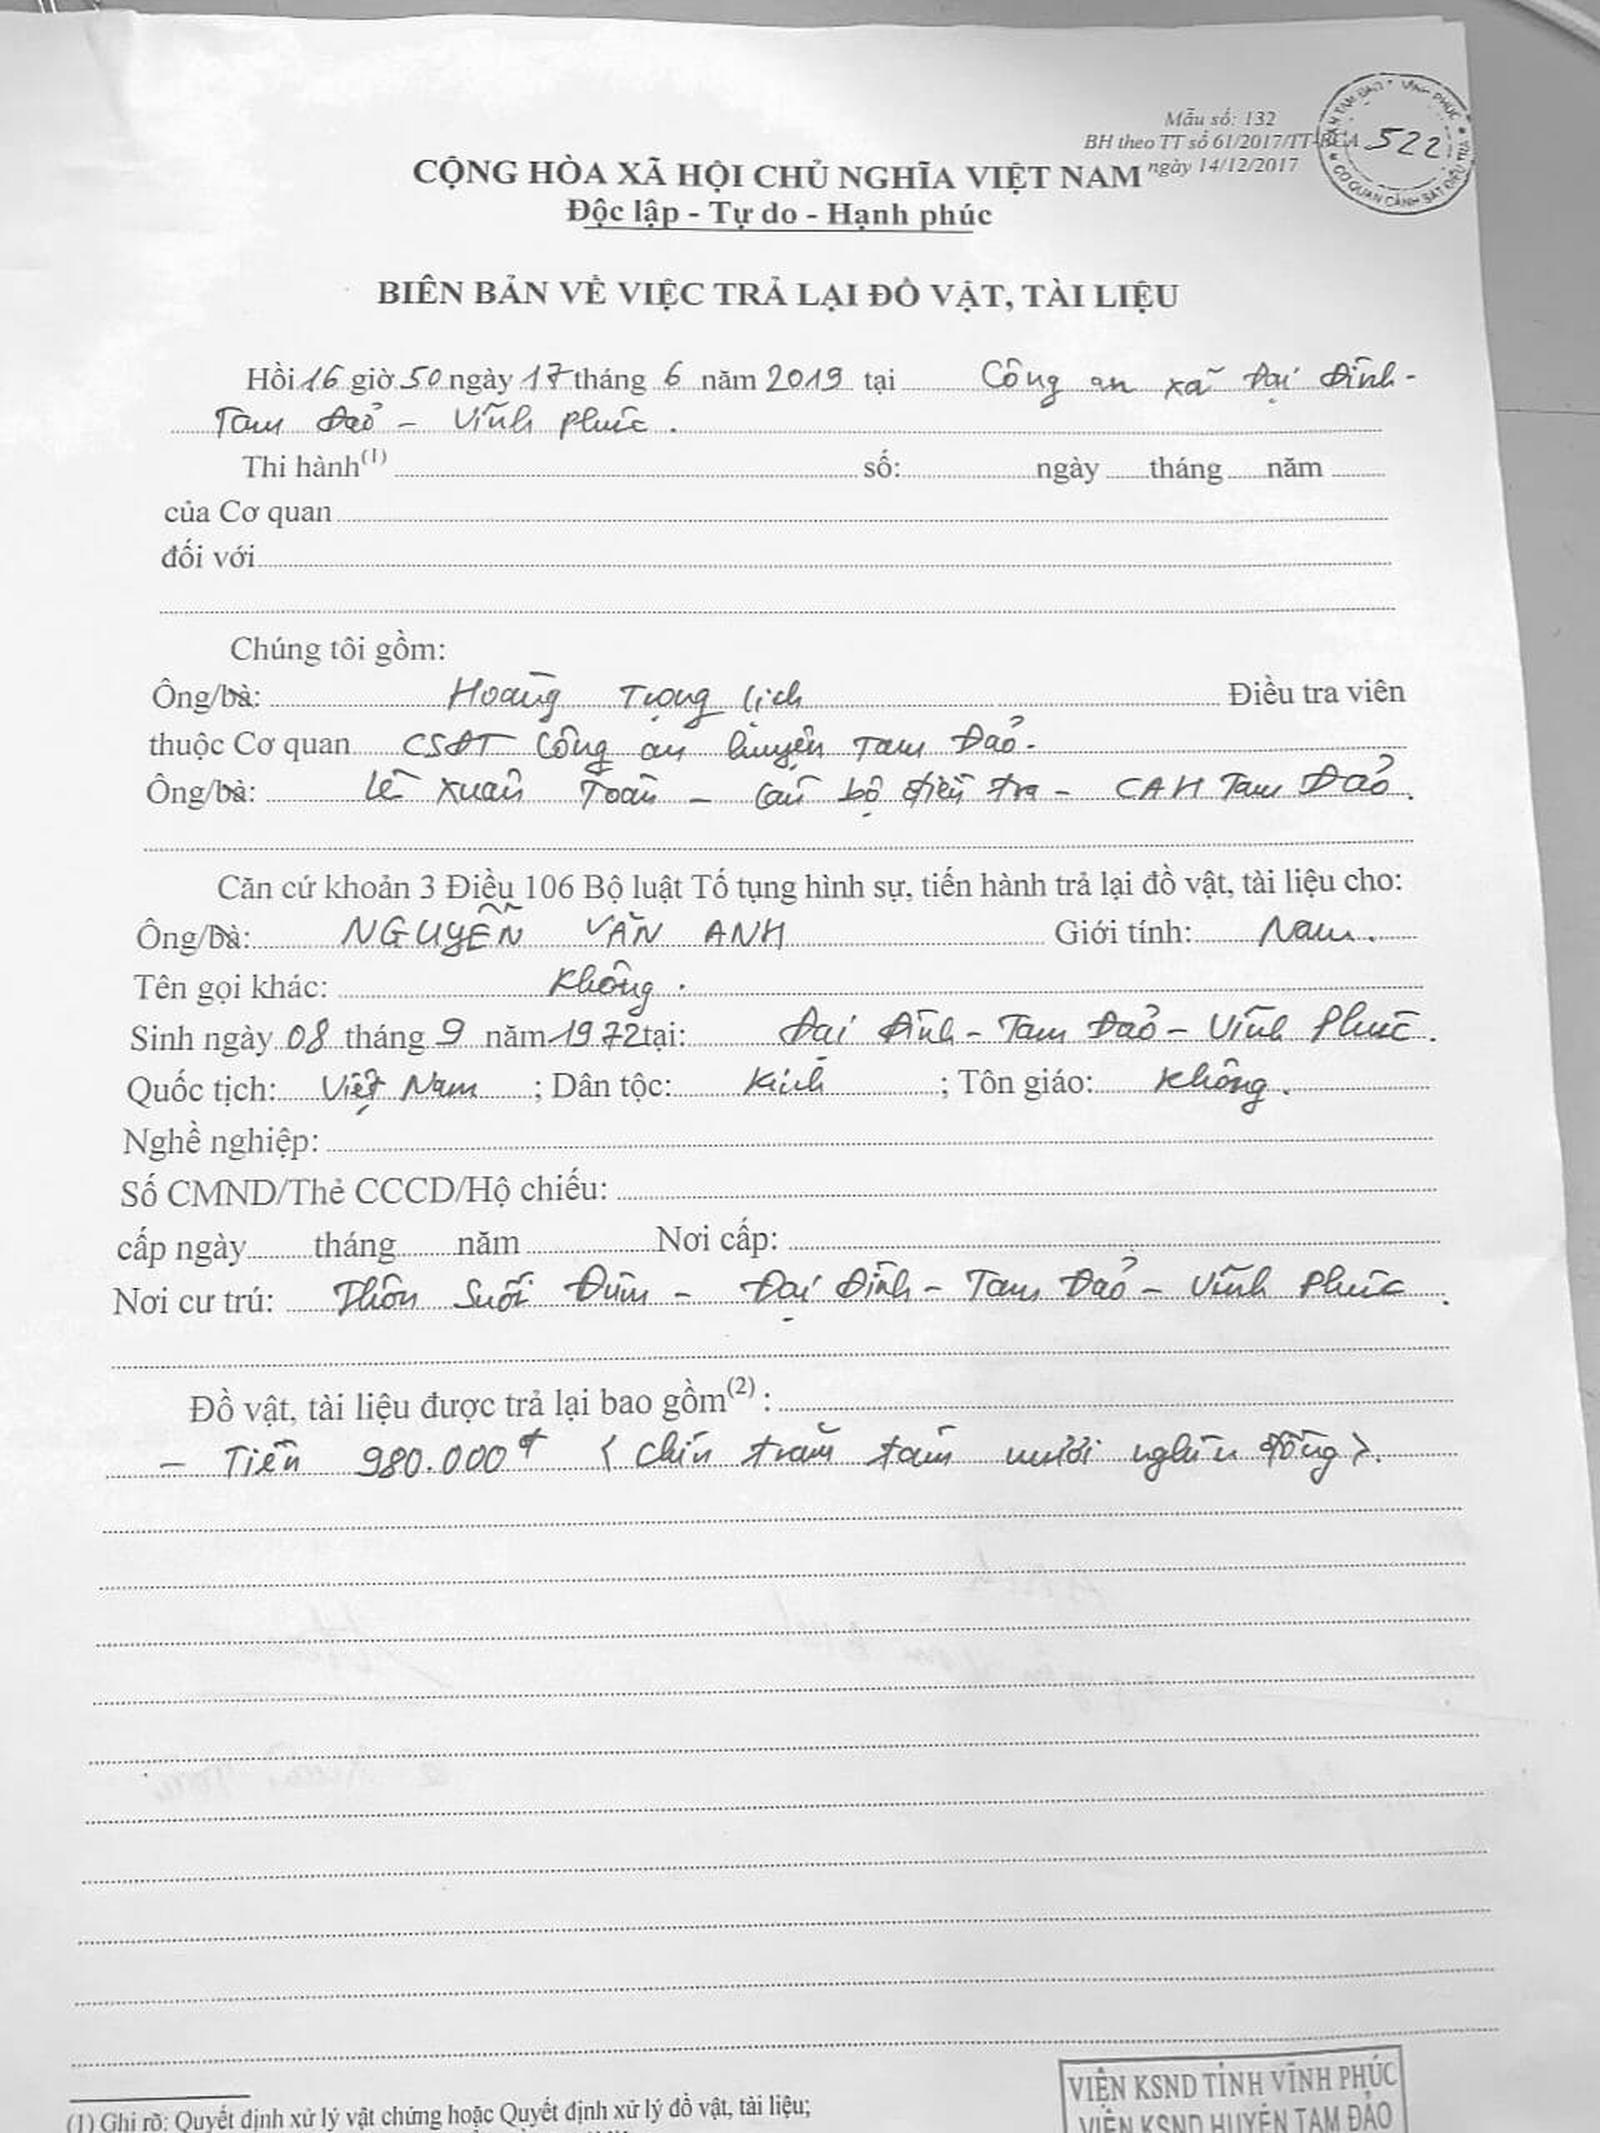 Mẫu số: 132
BH theo TT số 61/2017/TT-BCA
ngày 14/12/2017
TAM ĐẢO * VĨNH PHÚC * CƠ QUAN CẢNH SÁT ĐIỀU TRA
522
CỘNG HÒA XÃ HỘI CHỦ NGHĨA VIỆT NAM
Độc lập - Tự do - Hạnh phúc
BIÊN BẢN VỀ VIỆC TRẢ LẠI ĐỒ VẬT, TÀI LIỆU
Hồi 16 giờ 50 ngày 17 tháng 6 năm 2019 tại Công an xã Đại Đình -
Tam Đảo - Vĩnh Phúc.
Thi hành(1) số: ngày tháng năm
của Cơ quan
đối với
Chúng tôi gồm:
Ông/bà: Hoàng Trọng Lịch Điều tra viên
thuộc Cơ quan CSĐT Công an huyện Tam Đảo.
Ông/bà: Lê Xuân Toàn - Cán bộ điều tra - CAH Tam Đảo.
Căn cứ khoản 3 Điều 106 Bộ luật Tố tụng hình sự, tiến hành trả lại đồ vật, tài liệu cho:
Ông/bà: NGUYỄN VĂN ANH Giới tính: Nam.
Tên gọi khác: Không.
Sinh ngày 08 tháng 9 năm 1972 tại: Đại Đình - Tam Đảo - Vĩnh Phúc.
Quốc tịch: Việt Nam ; Dân tộc: Kinh ; Tôn giáo: Không.
Nghề nghiệp:
Số CMND/Thẻ CCCD/Hộ chiếu:
cấp ngày tháng năm Nơi cấp:
Nơi cư trú: Thôn Suối Đùm - Đại Đình - Tam Đảo - Vĩnh Phúc.
Đồ vật, tài liệu được trả lại bao gồm(2) :
- Tiền 980.000đ (Chín trăm tám mươi nghìn đồng).
(1) Ghi rõ: Quyết định xử lý vật chứng hoặc Quyết định xử lý đồ vật, tài liệu;
VIỆN KSND TỈNH VĨNH PHÚC
VIỆN KSND HUYỆN TAM ĐẢO